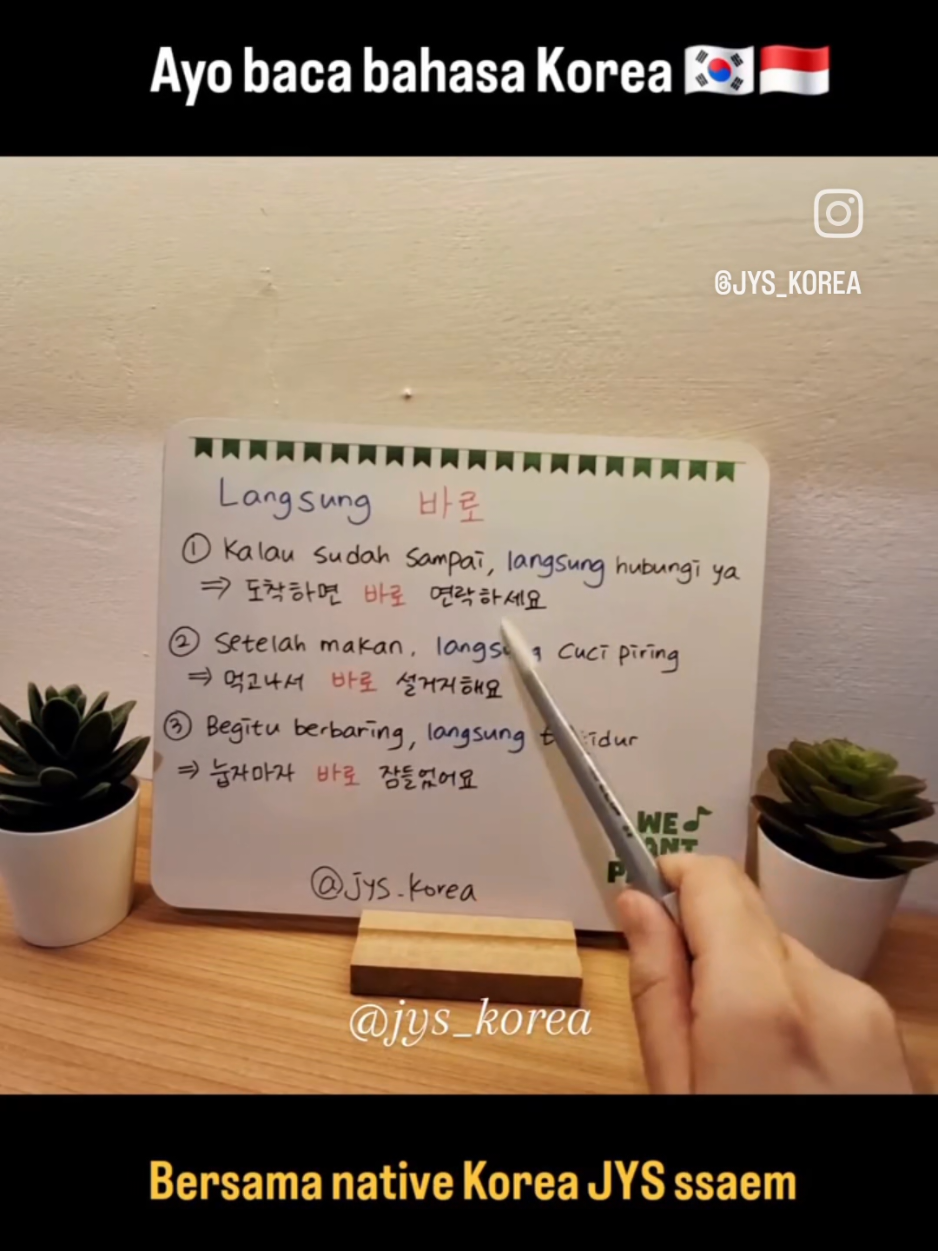 Ayo baca bahasa Korea 🇰🇷🇮🇩
@JYS_KOREA
Langsung 바로
① Kalau sudah sampai, langsung hubungi ya
⇒ 도착하면 바로 연락하세요
② Setelah makan, langsung cuci piring
⇒ 먹고나서 바로 설거지해요
③ Begitu berbaring, langsung tidur
⇒ 눕자마자 바로 잠들었어요
WE
@jys_korea
@jys_korea
Bersama native Korea JYS ssaem